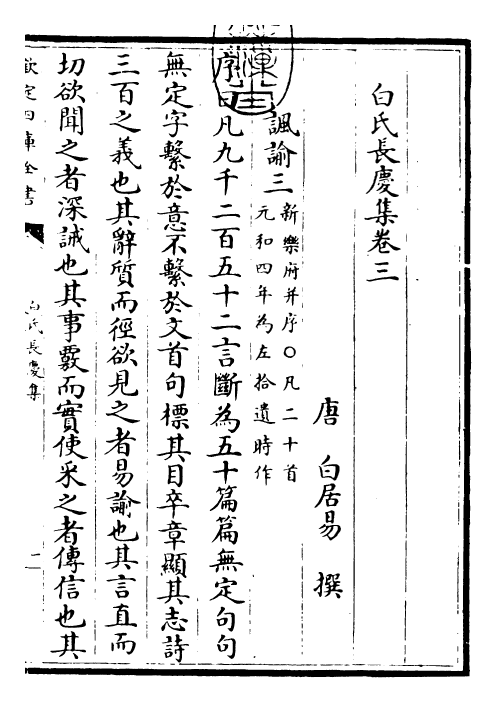 白氏長慶集卷三
唐 白居易 撰
諷諭三 新樂府并序○凡二十首
元和四年為左拾遺時作
序曰凡九千二百五十二言斷為五十篇篇無定句句
無定字繫於意不繫於文首句標其目卒章顯其志詩
三百之義也其辭質而徑欲見之者易諭也其言直而
切欲聞之者深誡也其事覈而實使采之者傳信也其
欽定四庫全書
白氏長慶集